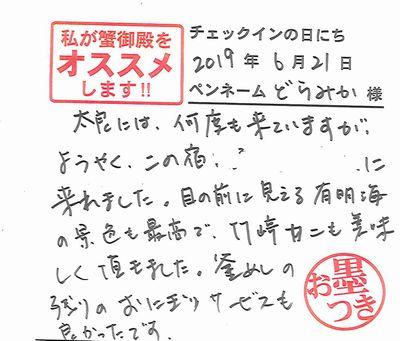 私が蟹御殿を
オススメ
します!!
チェックインの日にち
2019年6月21日
ペンネーム どらみか 様
太良には、何度も来ていますが、
ようやく、この宿、
に
来れました。目の前に見える有明海
の景色も最高で、竹崎カニも美味
しく頂きました。釜めしの
残りのおにぎりサービスも
良かったです。
お墨
つき